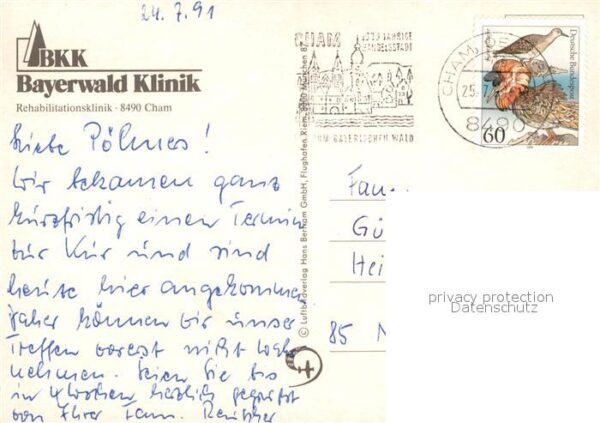 24.7.91
BKK
Bayerwald Klinik
Rehabilitationsklinik · 8490 Cham
Liebe Pölnes!
Wir bekamen ganz
kurzfristig einen Termin
zur Kur und sind
heute hier angekommen
Daher können wir unser
Treffen vorerst nicht wahr
nehmen. Seien Sie bis
in 4 Wochen herzlich gegrüßt
von Ihrer Fam.
© Luftbildverlag Hans Bertram GmbH, Flughafen Riem, 8000 München 87
CHAM
HANDELSSTADT
BAYERISCHEN WALD
CHAM, OBERPF
25.7
8490
Deutsche Bundespost
60
Fam.
Gü
Hei
85 N
privacy protection
Datenschutz